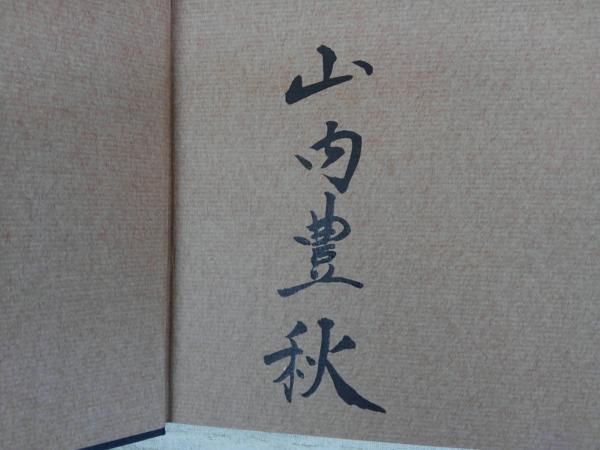 山内豊秋